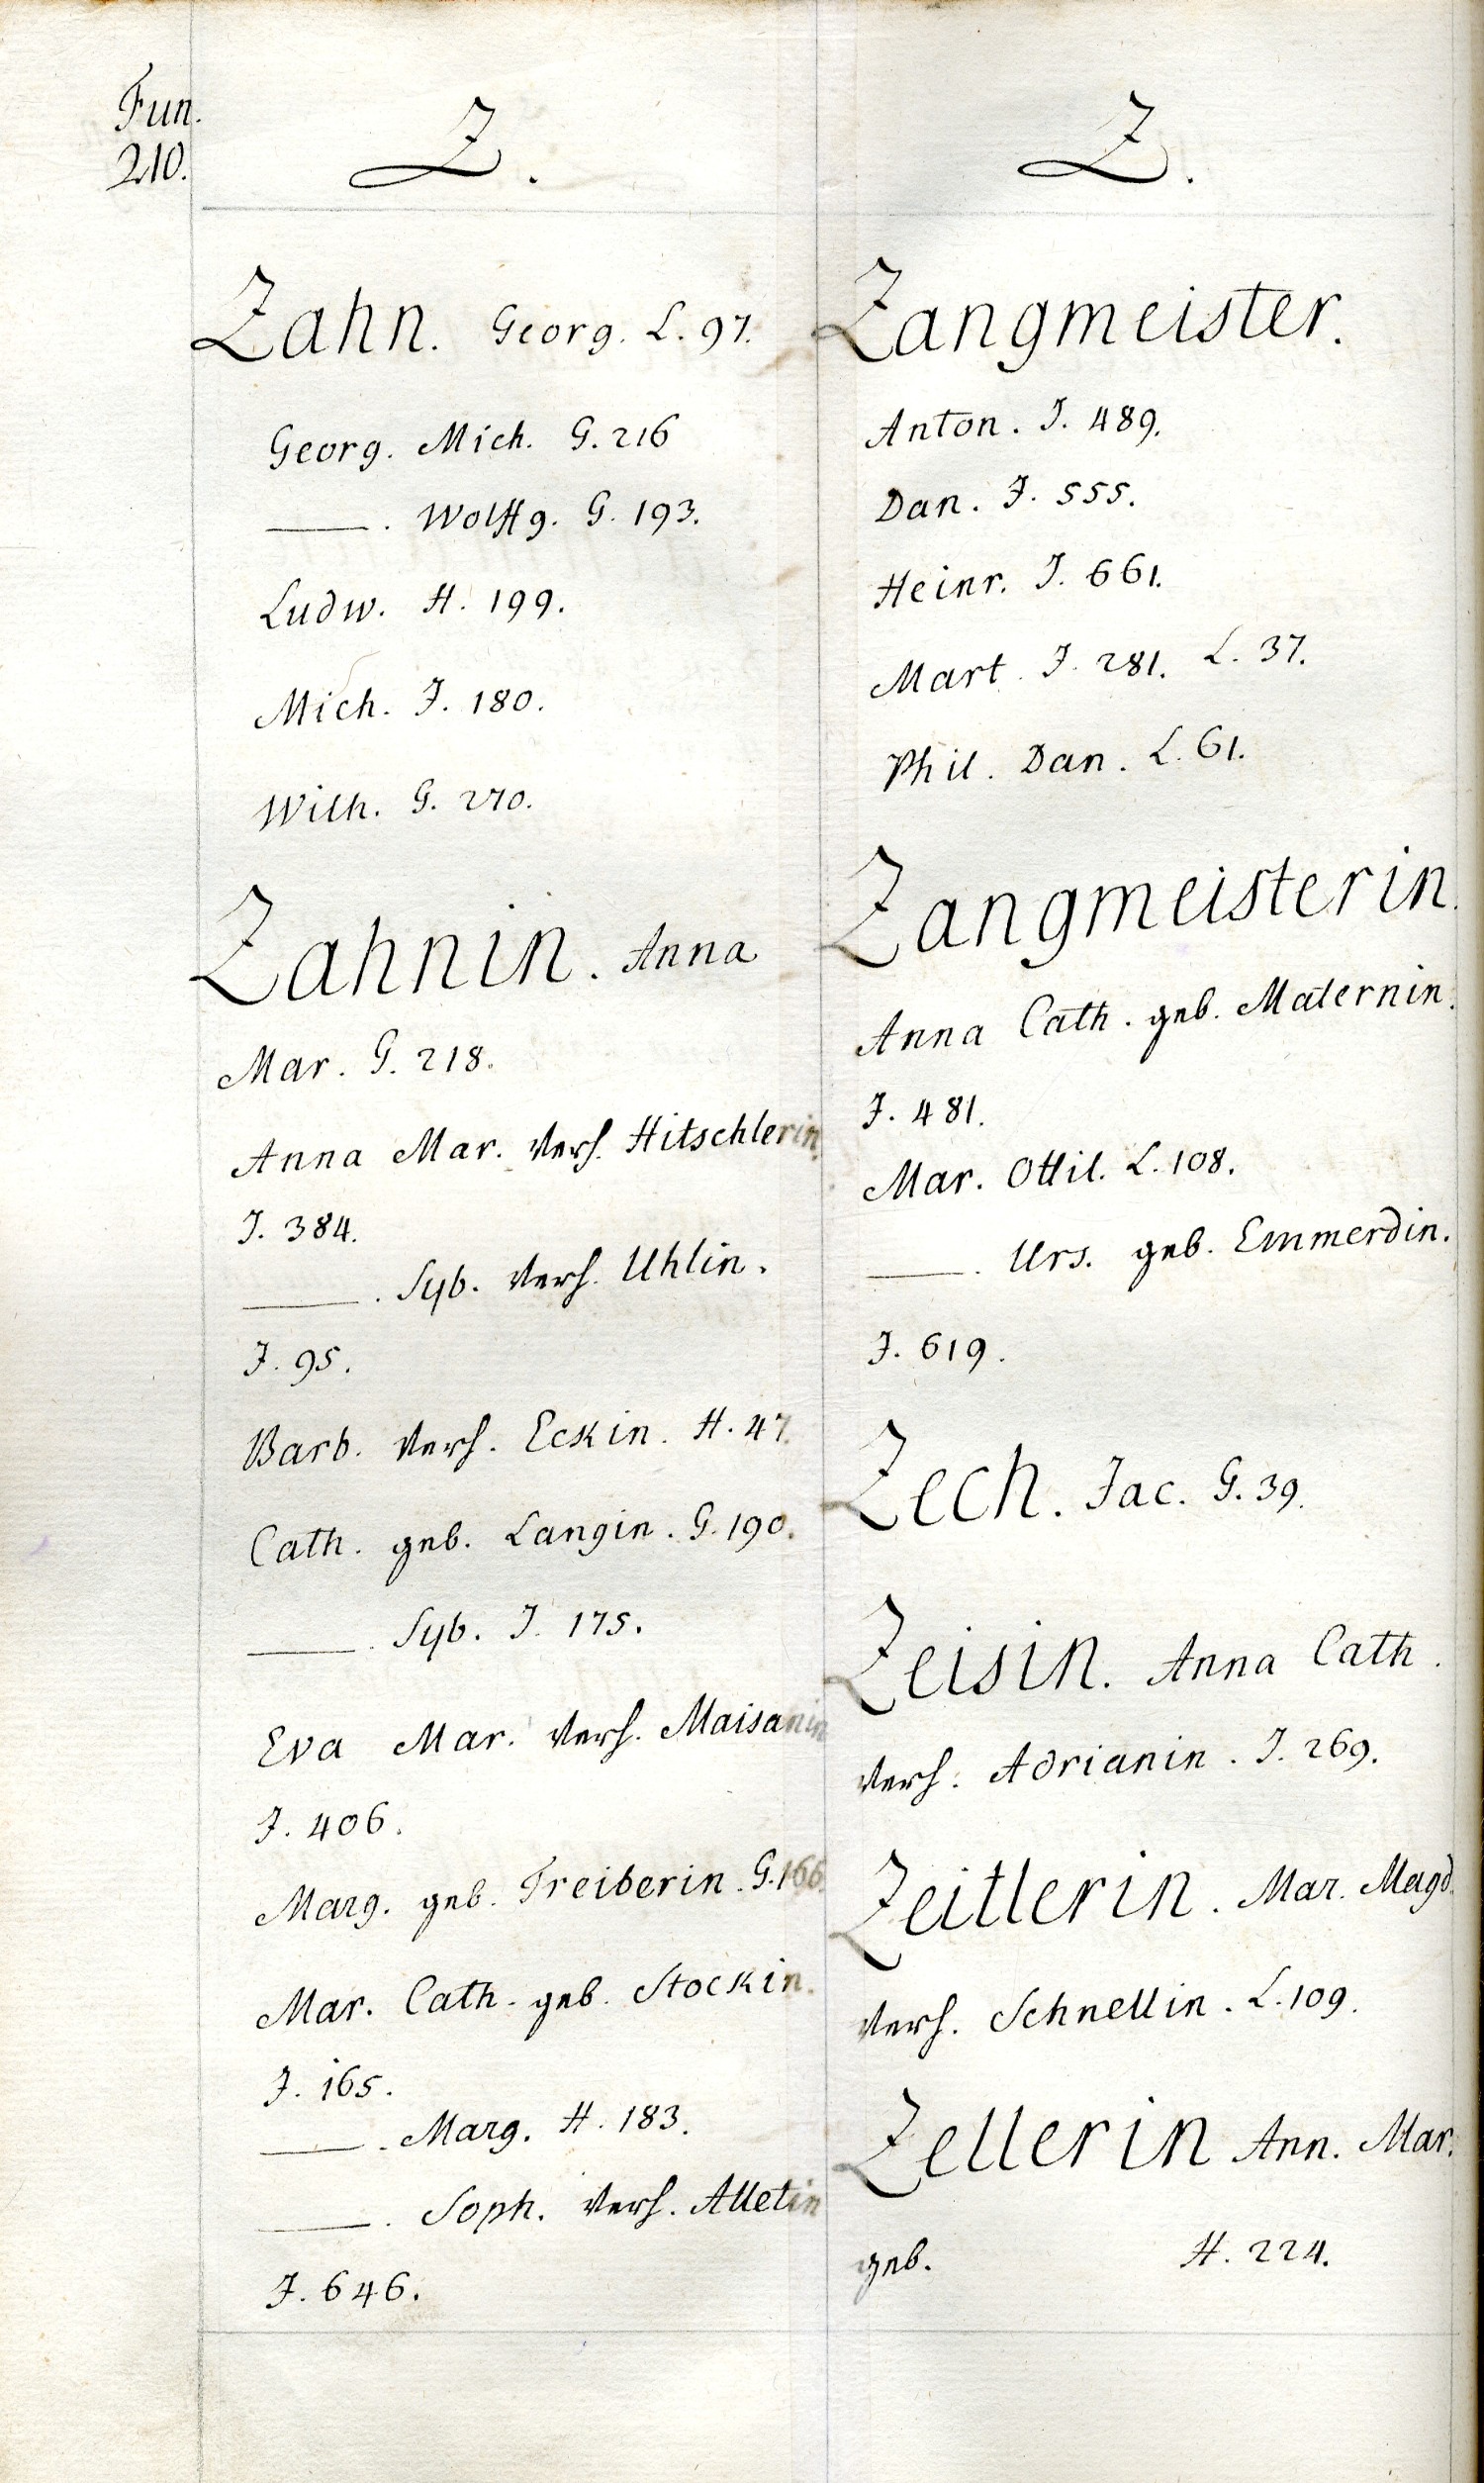 Fun.
210.
Z.
Zahn. Georg. L. 97.
Georg. Mich. G. 216
——. Wolffg. G. 193.
Ludw. H. 199.
Mich. J. 180.
Wilh. G. 270.
Zahnin. Anna
Mar. G. 218.
Anna Mar. verh. Hitschlerin.
J. 384.
——. Syb. verh. Uhlin.
J. 95.
Barb. verh. Eckin. H. 47.
Cath. geb. Langin. G. 190.
——. Syb. J. 175.
Eva Mar. verh. Maisanin
J. 406.
Marg. geb. Freiberin. G. 166.
Mar. Cath. geb. Stockin.
J. 165.
——. Marg. H. 183.
——. Soph. verh. Alletin
J. 646.
Z.
Zangmeister.
Anton. J. 489.
Dan. J. 555.
Heinr. J. 661.
Mart. J. 281. L. 37.
Phil. Dan. L. 61.
Zangmeisterin.
Anna Cath. geb. Maternin.
J. 481.
Mar. Ottil. L. 108.
——. Urs. geb. Emmerdin.
J. 619.
Zech. Jac. G. 39.
Zeisin. Anna Cath.
verh. Adrianin. J. 269.
Zeitlerin. Mar. Magd.
verh. Schnellin. L. 109.
Zellerin Ann. Mar.
geb. H. 224.